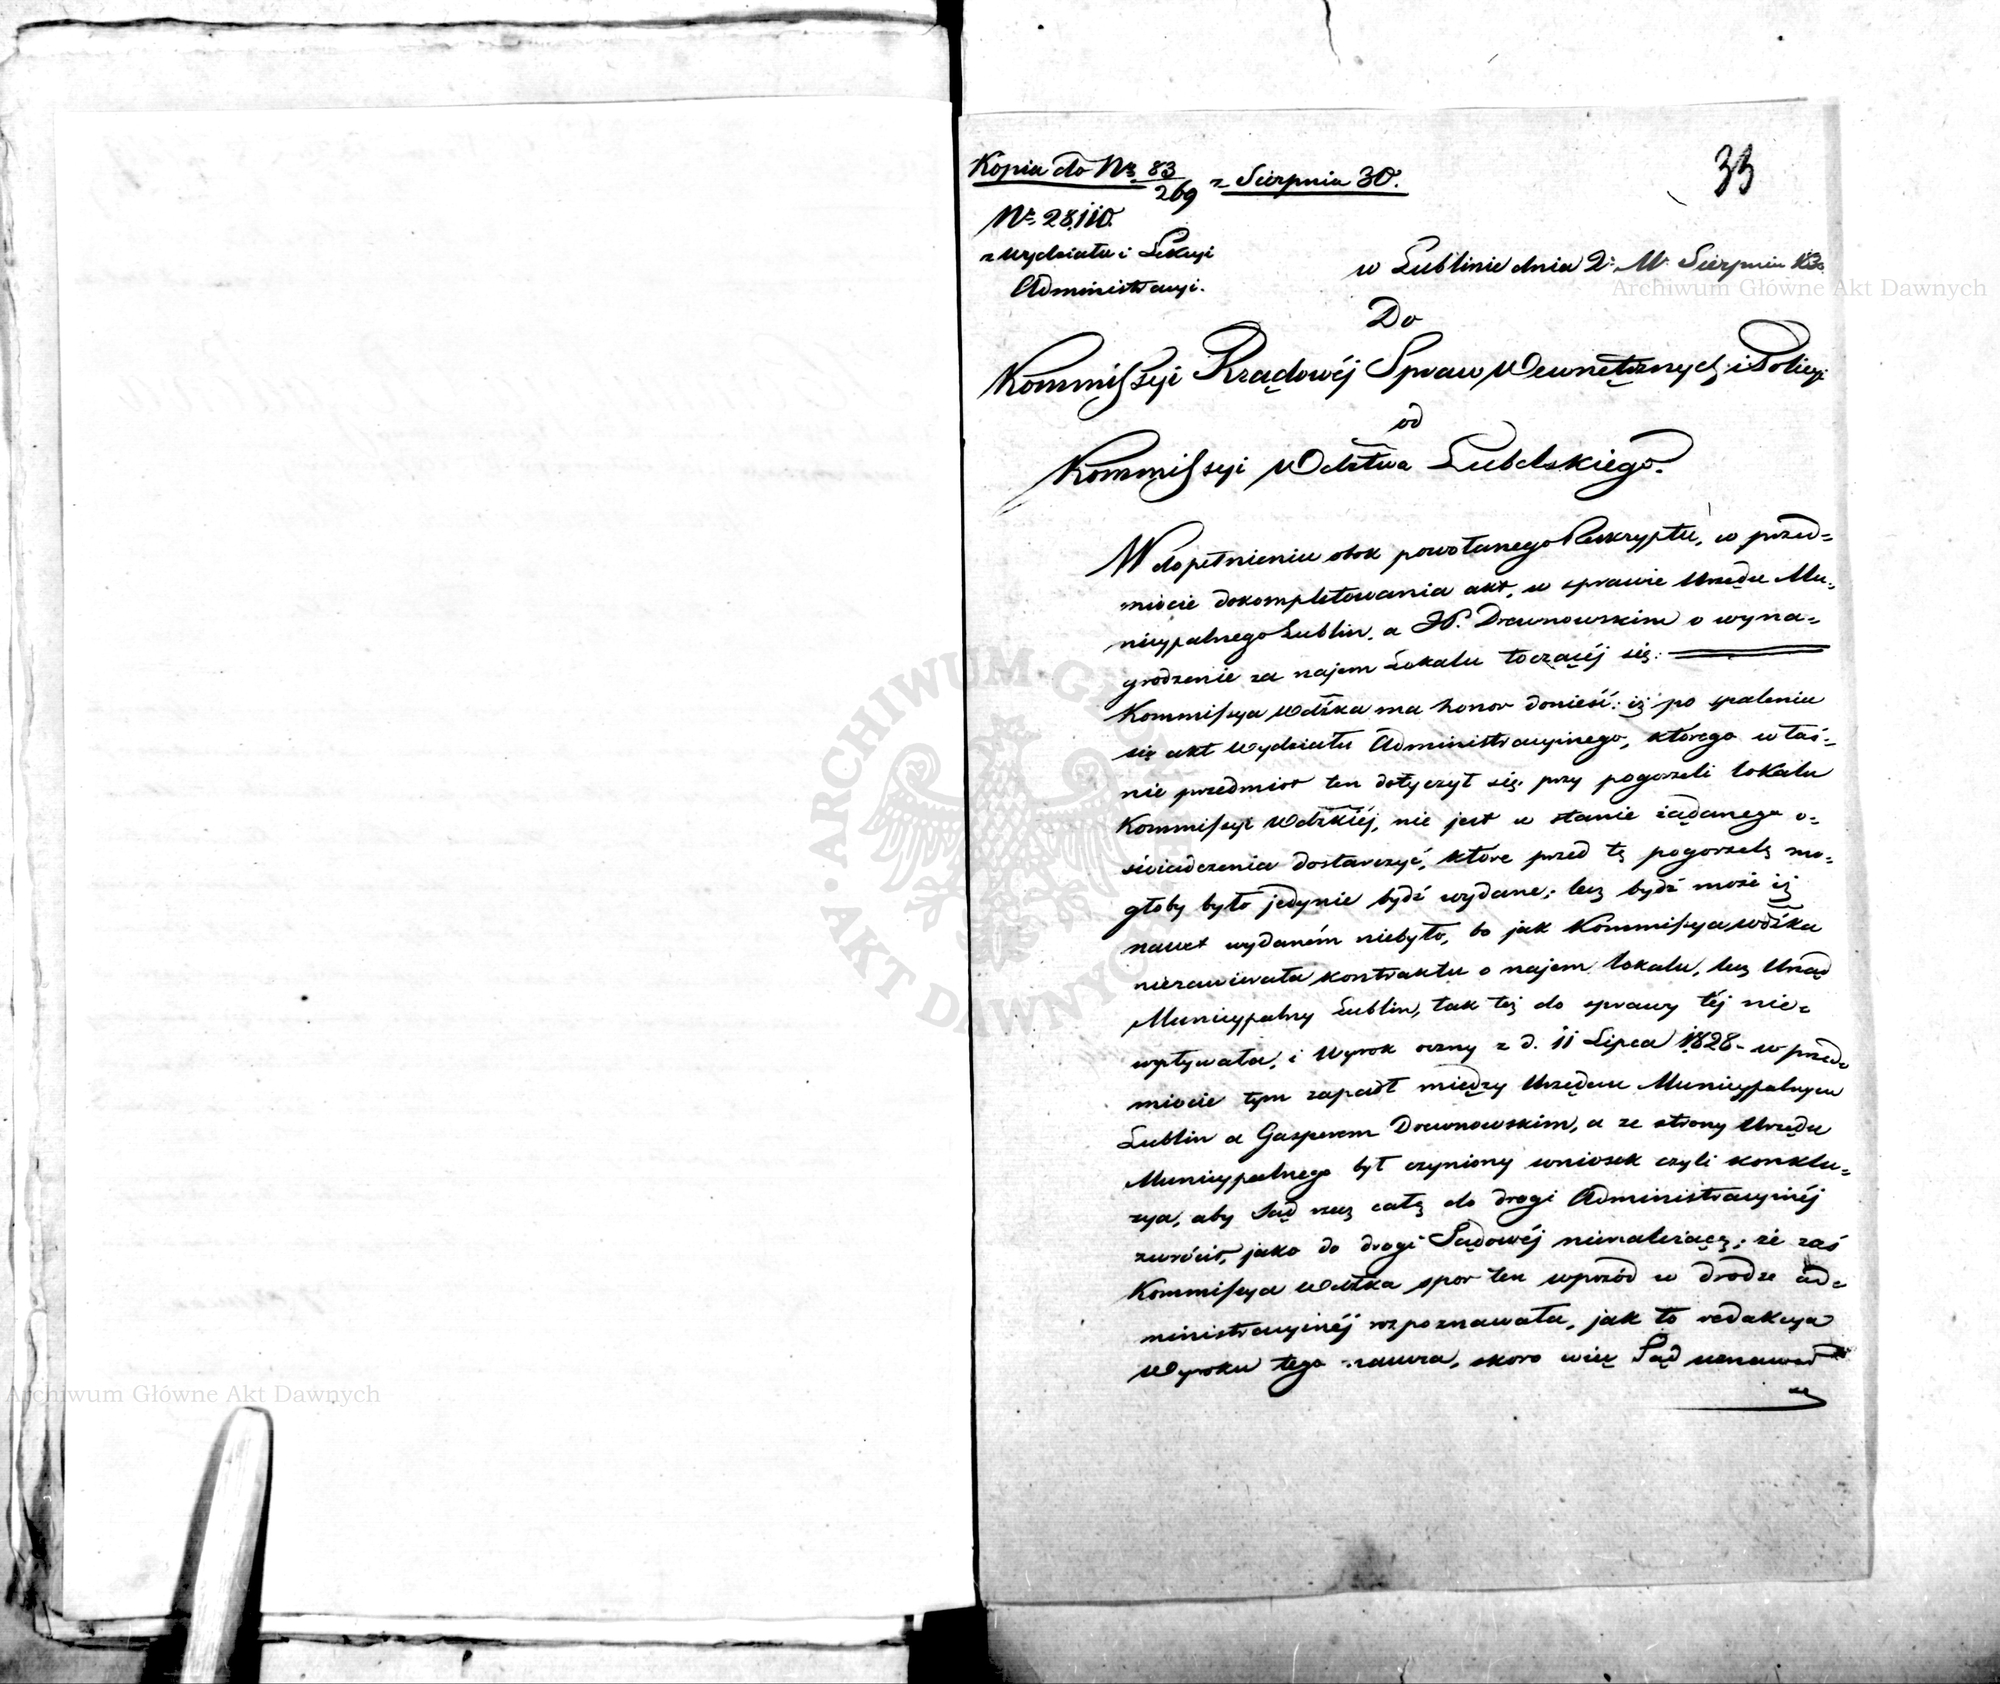 Kopia do Nr. 83/269 z Sierpnia 30.
33
Nr. 28,110.
z Wydziału i Sekcyi
Administracyi.
w Lublinie dnia 2. M. Sierpnia 1830
Do
Kommissyi Rządowéj Spraw Wewnętrznych i Policyi
od
Kommissyi Wdztwa Lubelskiego.
W dopełnieniu obok powołanego Reskryptu, w przed=
miocie dokompletowania akt, w sprawie Urzędu Mu=
nicypalnego Lublin, a JP. Drewnowskim o wyna=
grodzenie za najem Lokalu toczącéj się:
Kommissya Wdzka ma honor donieść: iż po spaleniu
się akt Wydziału Administracyinego, którego właś=
nie przedmiot ten dotyczył się, przy pogorzeli lokalu
Kommissyi Wdzkiéj, nie jest w stanie żądanego o=
świadczenia dostarczyć, które przed tą pogorzelą mo=
głoby było jedynie bydź wydane; lecz bydź może iż
nawet wydaném niebyło, bo jak Kommissya Wdzka
niezawierała kontraktu o najem lokalu, lecz Urząd
Municypalny Lublin, tak też do sprawy téj nie=
wpływała, i Wyrok oczny z d. 11 Lipca 1828 w przed=
miocie tym zapadł między Urzędem Municypalnym
Lublin a Gasperem Drewnowskim, a ze strony Urzędu
Municypalnego był czyniony wniosek czyli konklu=
zya, aby Sąd rzecz całą do drogi Administracyinéj
zwrócił, jako do drogi Sądowéj nienależącą; że zaś
Kommissya Wdzka spor ten wprzód w drodze ad=
ministracyinéj rozpoznawała, jak to redakcya
Wyroku tego zawiera, skoro więc Sąd
Archiwum Główne Akt Dawnych
Archiwum Główne Akt Dawnych
ARCHIWUM GŁÓWNE AKT DAWNYCH